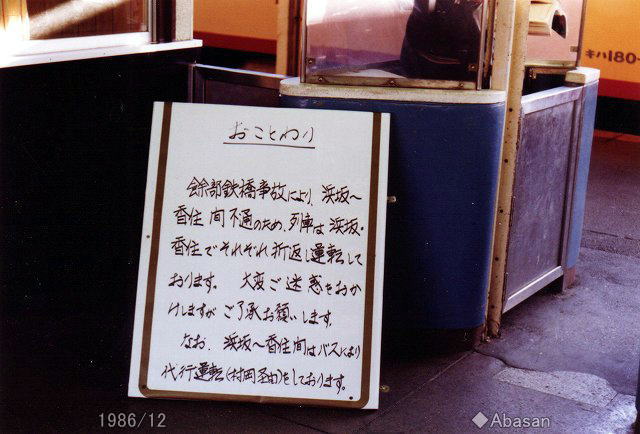 おことわり
餘部鉄橋事故により、浜坂〜
香住間不通のため、列車は浜坂・
香住でそれぞれ折返し運転して
おります。 大変ご迷惑をおか
けしますがご了承お願いします。
なお、浜坂〜香住間はバスにより
代行運転(村岡経由)をしております。
キハ180-
1986/12
◆Abasan